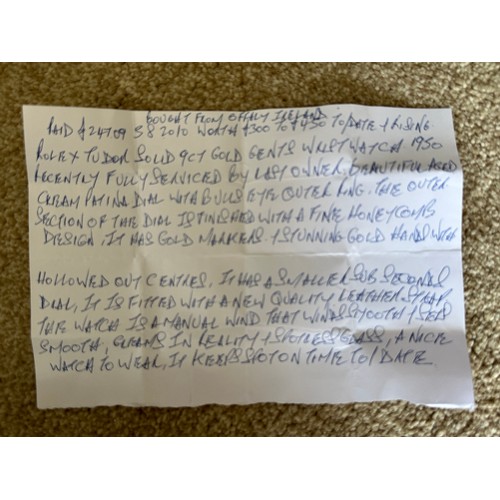 BOUGHT FROM OFFALY IRELAND
PAID £247.09 5 8 2010 WORTH £300 TO £450 TO/DATE & RISING
ROLEX TUDOR SOLID 9CT GOLD GENTS WRIST WATCH 1950
RECENTLY FULLY SERVICED BY LAST OWNER, BEAUTIFUL AGED
CREAM PATINA DIAL WITH BULLS EYE OUTER RING. THE OUTER
SECTION OF THE DIAL IS FINISHED WITH A FINE HONEYCOMB
DESIGN. IT HAS GOLD MARKERS & STUNNING GOLD HANDS WITH
HOLLOWED OUT CENTRES, IT HAS A SMALLER SUB SECONDS
DIAL, IT IS FITTED WITH A NEW QUALITY LEATHER STRAP
THE WATCH IS A MANUAL WIND THAT WINDS SMOOTH & SETS
SMOOTH, GLEAMS IN REALITY & SPOTLESS GLASS, A NICE
WATCH TO WEAR, IT KEEPS SPOT ON TIME TO/DATE.